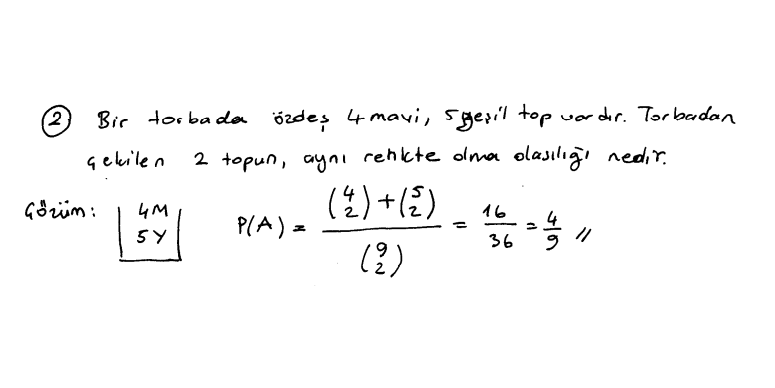 2 Bir torbada özdeş 4 mavi, 5 yeşil top vardır. Torbadan
çekilen 2 topun, aynı renkte olma olasılığı nedir.
Çözüm: 4M 5Y P(A) = ((4 2) + (5 2)) / (9 2) = 16/36 = 4/9 //